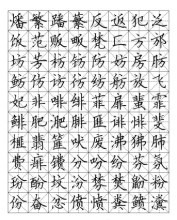 燔繁蹯蘩反返犯泛
饭范贩畈梵匚方邡
坊芳枋钫防妨房肪
鲂仿访纺舫放飞
妃非啡绯菲扉蜚霏
鲱肥淝腓匪诽悱斐
榧翡篚吠废沸狒肺
费痱镄分吩纷芬氛
玢酚坟汾棼焚鼢粉
份奋忿偾愤粪鲼瀵